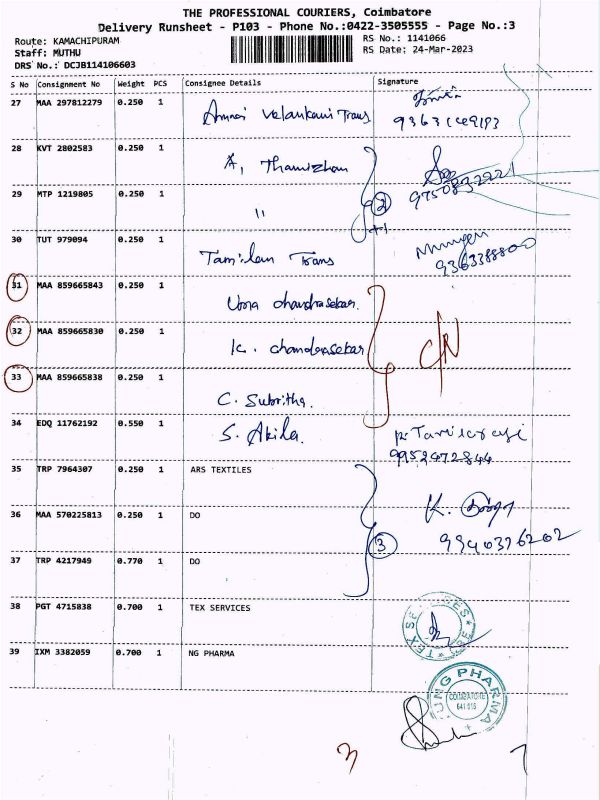 THE PROFESSIONAL COURIERS, Coimbatore
Delivery Runsheet - P103 - Phone No.:0422-3505555 - Page No.:3
Route: KAMACHIPURAM
RS No.: 1141066
Staff: MUTHU
RS Date: 24-Mar-2023
DRS No.: DCJB114106603
S No Consignment No Weight PCS Consignee Details Signature
27 MAA 297812279 0.250 1 Annai Velankani Trans
28 KVT 2802583 0.250 1 A, Thamizhan
9750832221
29 MTP 1219805 0.250 1 "
2
+1
30 TUT 979094 0.250 1 Tamilan Trans
9363388800
31 MAA 859665843 0.250 1 Uma chandrasekar.
32 MAA 859665830 0.250 1 K. chandrasekar
33 MAA 859665838 0.250 1 C. Subritha.
34 EDQ 11762192 0.550 1 S. Akila.
9952472844
35 TRP 7964307 0.250 1 ARS TEXTILES
36 MAA 570225813 0.250 1 DO K.
9940376202
3
37 TRP 4217949 0.770 1 DO
38 PGT 4715838 0.700 1 TEX SERVICES
TEX SERVICES
39 IXM 3382059 0.700 1 NG PHARMA
NG PHARMA
COIMBATORE
641 015
3